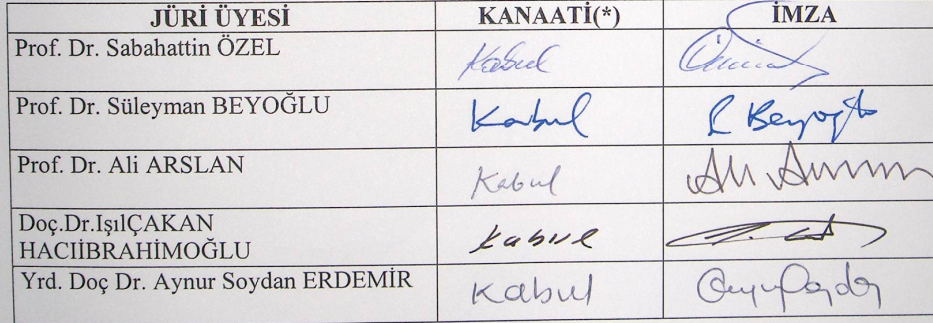 JÜRİ ÜYESİ KANAATİ(*) İMZA
Prof. Dr. Sabahattin ÖZEL Kabul
Prof. Dr. Süleyman BEYOĞLU Kabul Beyoğlu
Prof. Dr. Ali ARSLAN Kabul Ali
Doç.Dr.IşılÇAKAN
HACIİBRAHİMOĞLU Kabul
Yrd. Doç Dr. Aynur Soydan ERDEMİR Kabul